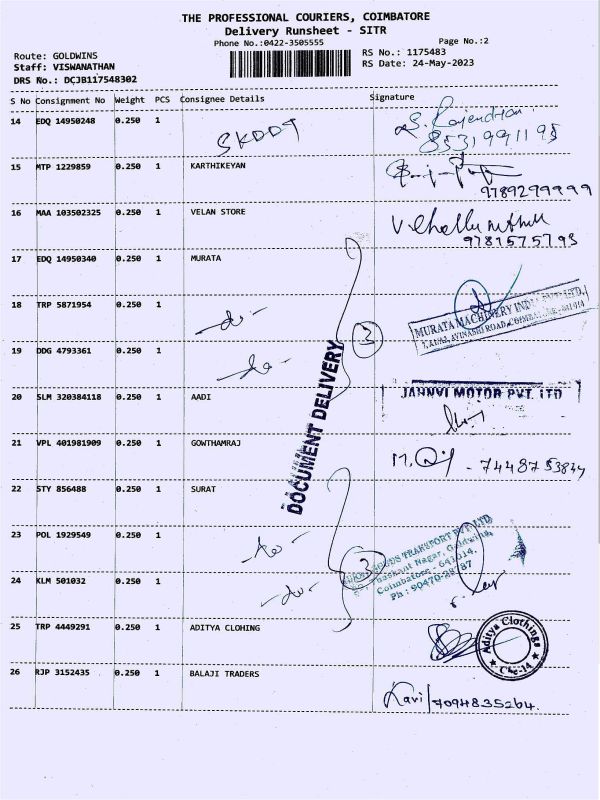 THE PROFESSIONAL COURIERS, COIMBATORE
Delivery Runsheet - SITR
Phone No.:0422-3505555 Page No.:2
Route: GOLDWINS RS No.: 1175483
Staff: VISWANATHAN RS Date: 24-May-2023
DRS No.: DCJB117548302
S No Consignment No Weight PCS Consignee Details Signature
14 EDQ 14950248 0.250 1 SKDDT S. Rajendran
8531991195
15 MTP 1229859 0.250 1 KARTHIKEYAN
9789299999
16 MAA 103502325 0.250 1 VELAN STORE
9781575793
17 EDQ 14950340 0.250 1 MURATA
18 TRP 5871954 0.250 1 -do- MURATA MACHINERY PVT. LTD.
AVINASHI ROAD,
19 DDG 4793361 0.250 1 -do- 3
DOCUMENT DELIVERY
20 SLM 320384118 0.250 1 AADI JAHNVI MOTOR PVT. LTD
21 VPL 401981909 0.250 1 GOWTHAMRAJ
22 STY 856488 0.250 1 SURAT
23 POL 1929549 0.250 1 -do- TRANSPORT PVT LTD
Nagar, Goldwins,
24 KLM 501032 0.250 1 -do- 3 Coimbatore - 641014.
25 TRP 4449291 0.250 1 ADITYA CLOHING Aditya Clothings
Cbe-14
26 RJP 3152435 0.250 1 BALAJI TRADERS Ravi/7094835264.